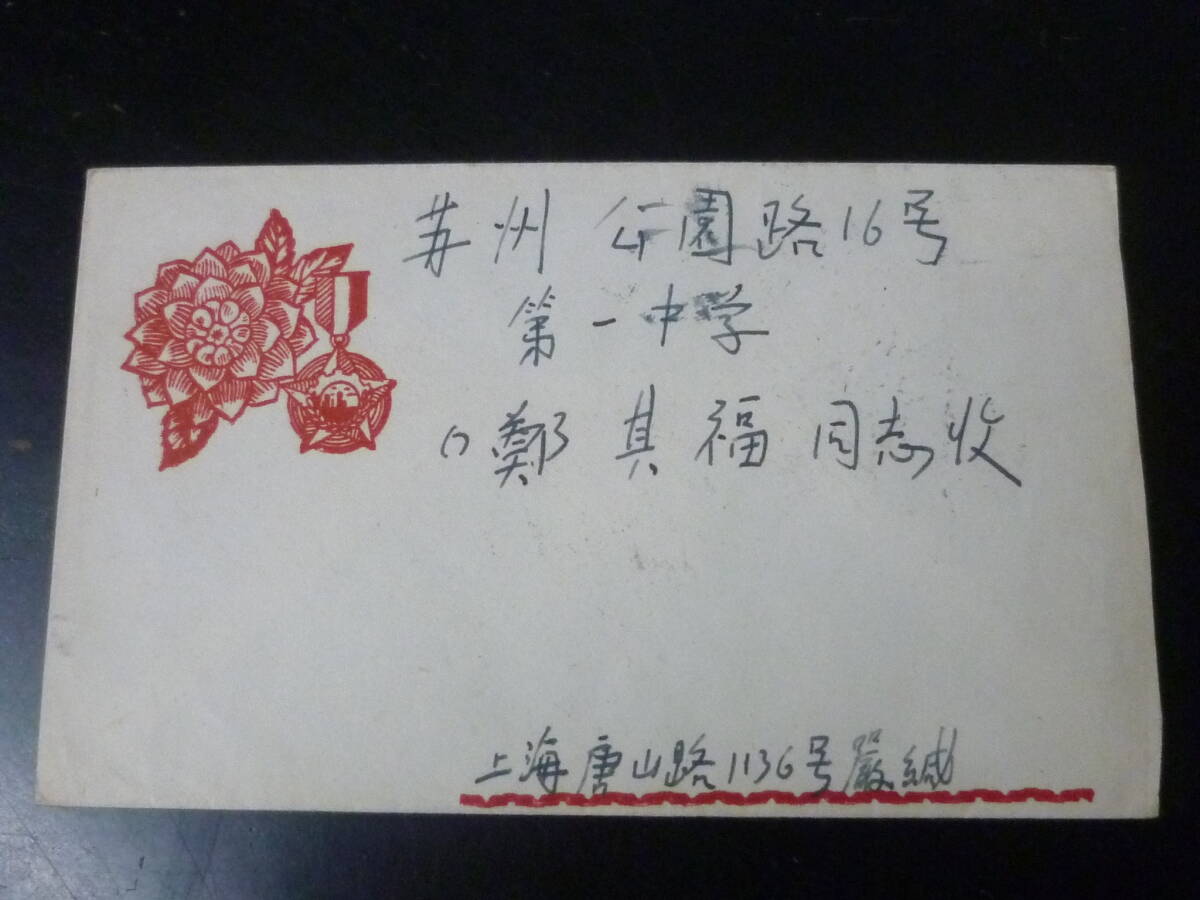 苏州 公園路16号
第一中学
鄭其福 同志收
上海唐山路1136号嚴缄